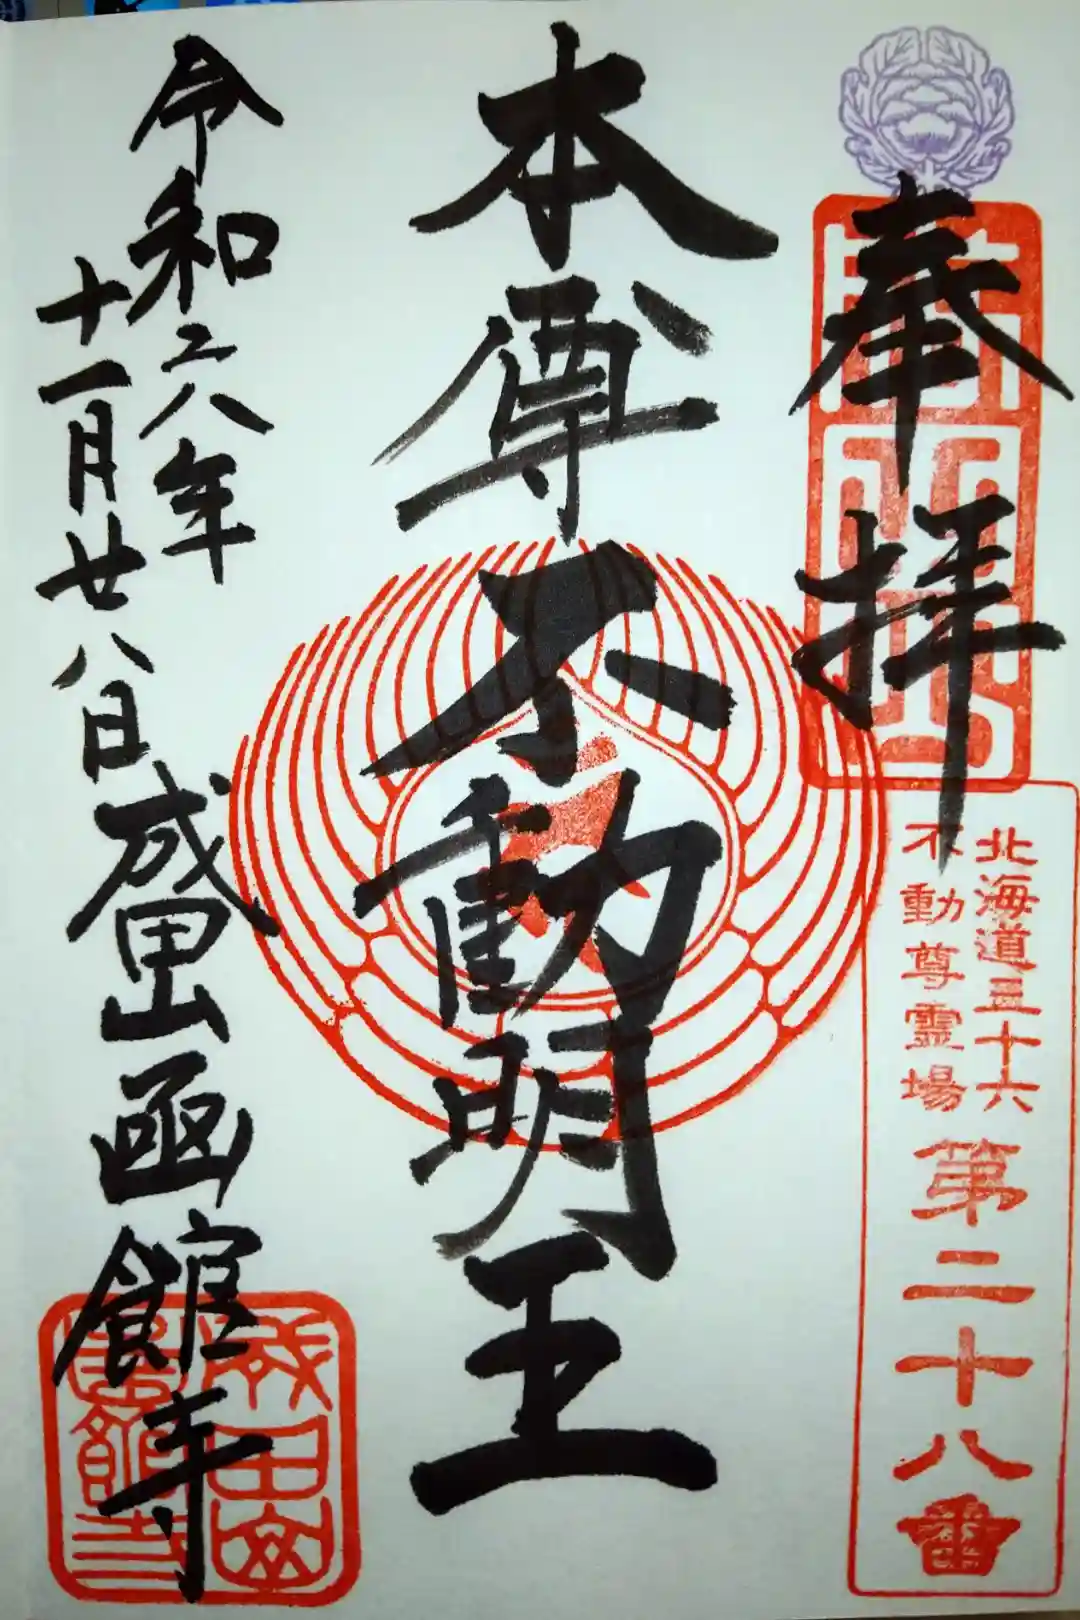 奉拝
北海道三十六
不動尊霊場
第二十八番
本尊不動明王
令和六年
十一月廿八日
成田山函館寺
成田山
函館寺